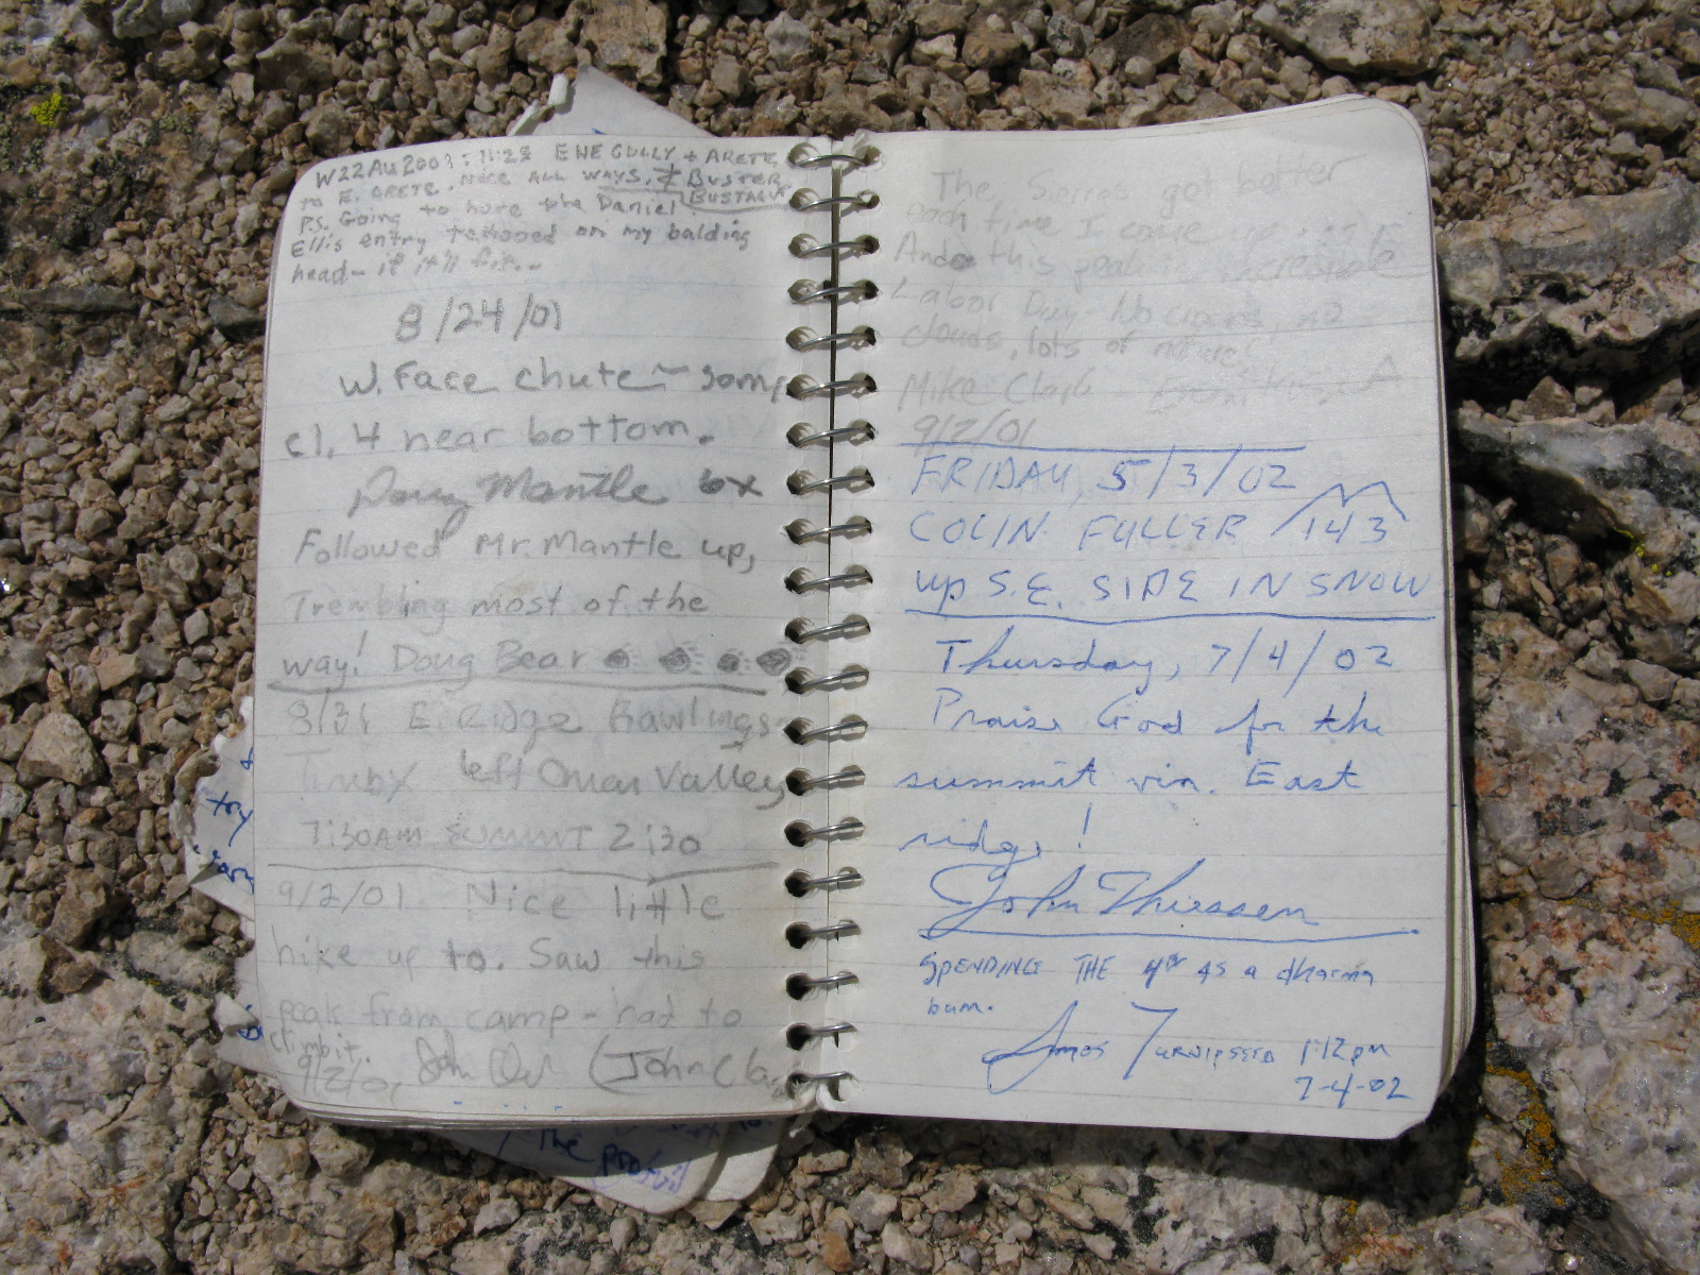 W22AU2001: 11:28 E WE GULLY + ARETE
to E. ARETE. NICE ALL WAYS. BUSTER
P.S. Going to have the Daniel BUSTAUP
Ellis entry tattooed on my balding
head - if it'll fit...
8/24/01
W. Face chute ~ some
cl. 4 near bottom.
Doug Mantle 6x
Followed Mr. Mantle up,
Trembling most of the
way! Doug Bear
8/31 E. Ridge Rawlings
left Omas Valley
7:30AM SUMMIT 2:30
9/2/01 Nice little
hike up to. Saw this
peak from camp - had to
climb it.
9/2/01 John (John Cla
The Sierras get better
each time I come up
And this peak is incredible
Labor Day - No crowds, no
clouds, lots of nature!
Mike Clark -
9/2/01
FRIDAY, 5/3/02
COLIN FULLER 143
up S.E. SIDE IN SNOW
Thursday, 7/4/02
Praise God for the
summit via. East
ridge!
John Thiessen
SPENDING THE 4th AS a dharma
bum.
Amos TURNIPSEED 1:12 pm
7-4-02
try
The